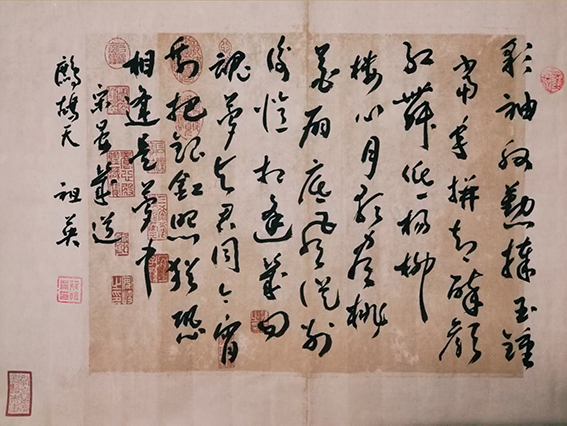 彩袖殷勤捧玉鍾
當年拚却醉顔
红舞低楊柳
楼心月歌尽桃
花扇底风從别
後憶相逢幾回
魂夢与君同今宵
剩把銀釭照猶恐
相逢是夢中
宋晏幾道
鷓鴣天 祖英